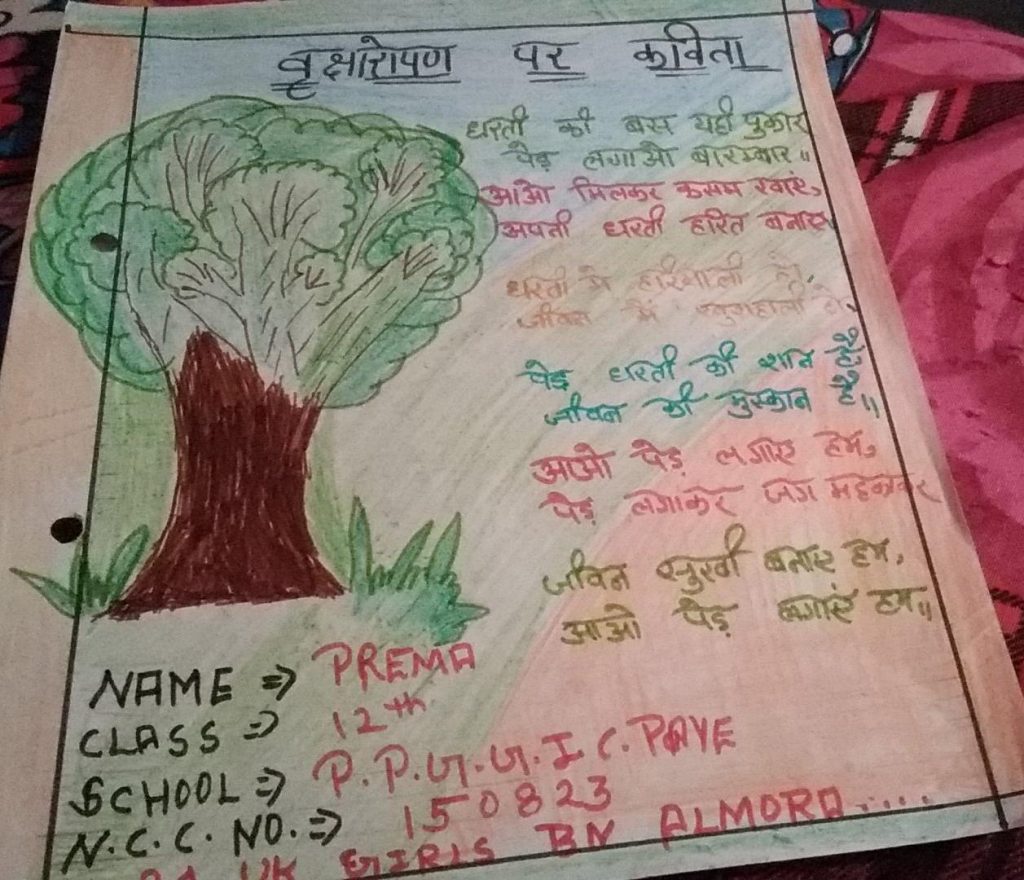 वृक्षारोपण पर कविता
धरती की बस यही पुकार
पेड़ लगाओ बारम्बार॥
आओ मिलकर कसम खाएं,
अपनी धरती हरित बनाए
धरती में हरियाली हो,
जीवन में खुशहाली हो
पेड़ धरती की शान है
जीवन की मुस्कान है॥
आओ पेड़ लगाए हम,
पेड़ लगाकर जग महकाकर
जीवन सुखी बनाए हम,
आओ पेड़ लगाएं हम॥
NAME ⇒ PREMA
CLASS ⇒ 12th
SCHOOL ⇒ P.P.G.G.I.C. PAYE
N.C.C. NO. ⇒ 150823
UK GIRLS BN ALMORA....